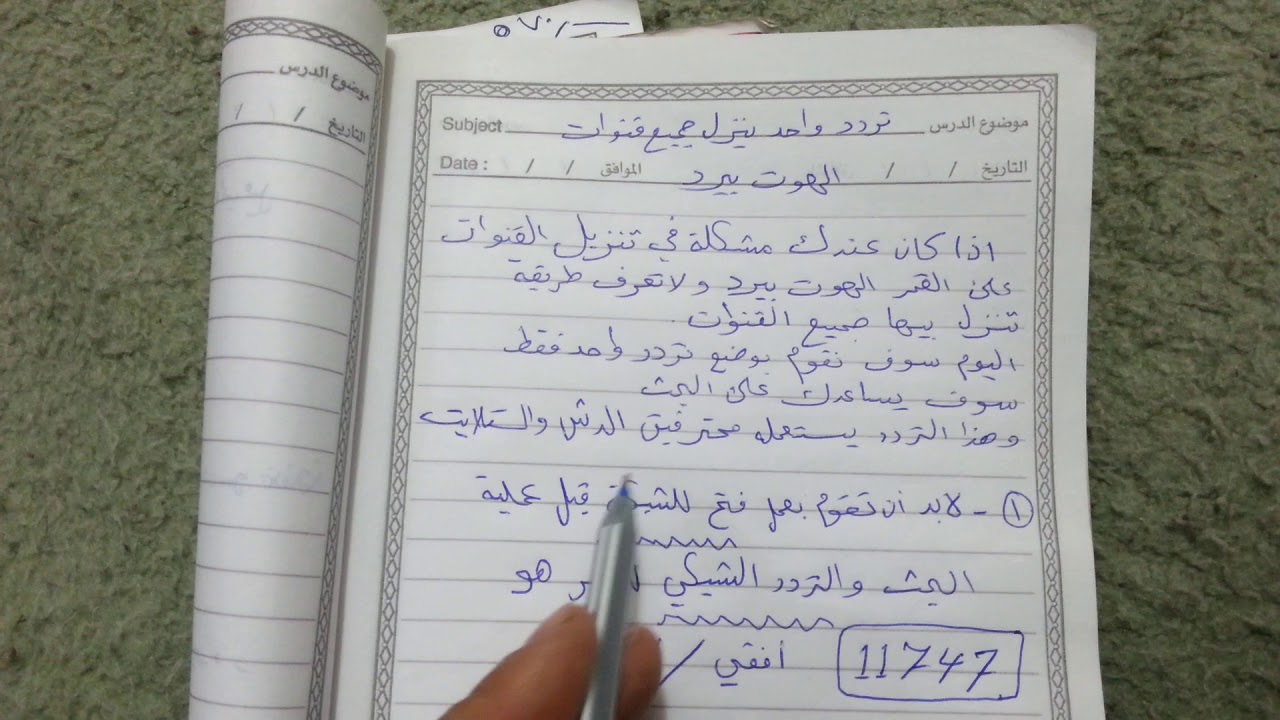 موضوع الدرس تردد واحد ينزل جميع قنوات Subject
التاريخ / / الهوت بيرد الموافق / / Date :
اذا كان عندك مشكلة في تنزيل القنوات
على القمر الهوت بيرد ولا تعرف طريقه
تنزل بيها جميع القنوات.
اليوم سوف نقوم بوضع تردد واحد فقط
سوف يساعدك على البحث
وهذا التردد يستعمله محترفين الدش والستلايت
١ - لابد أن تقوم بعمل فتح قبل عملية
البحث والتردد الشبكي هو
11747 أفقي /
موضوع الدرس
التاريخ / /